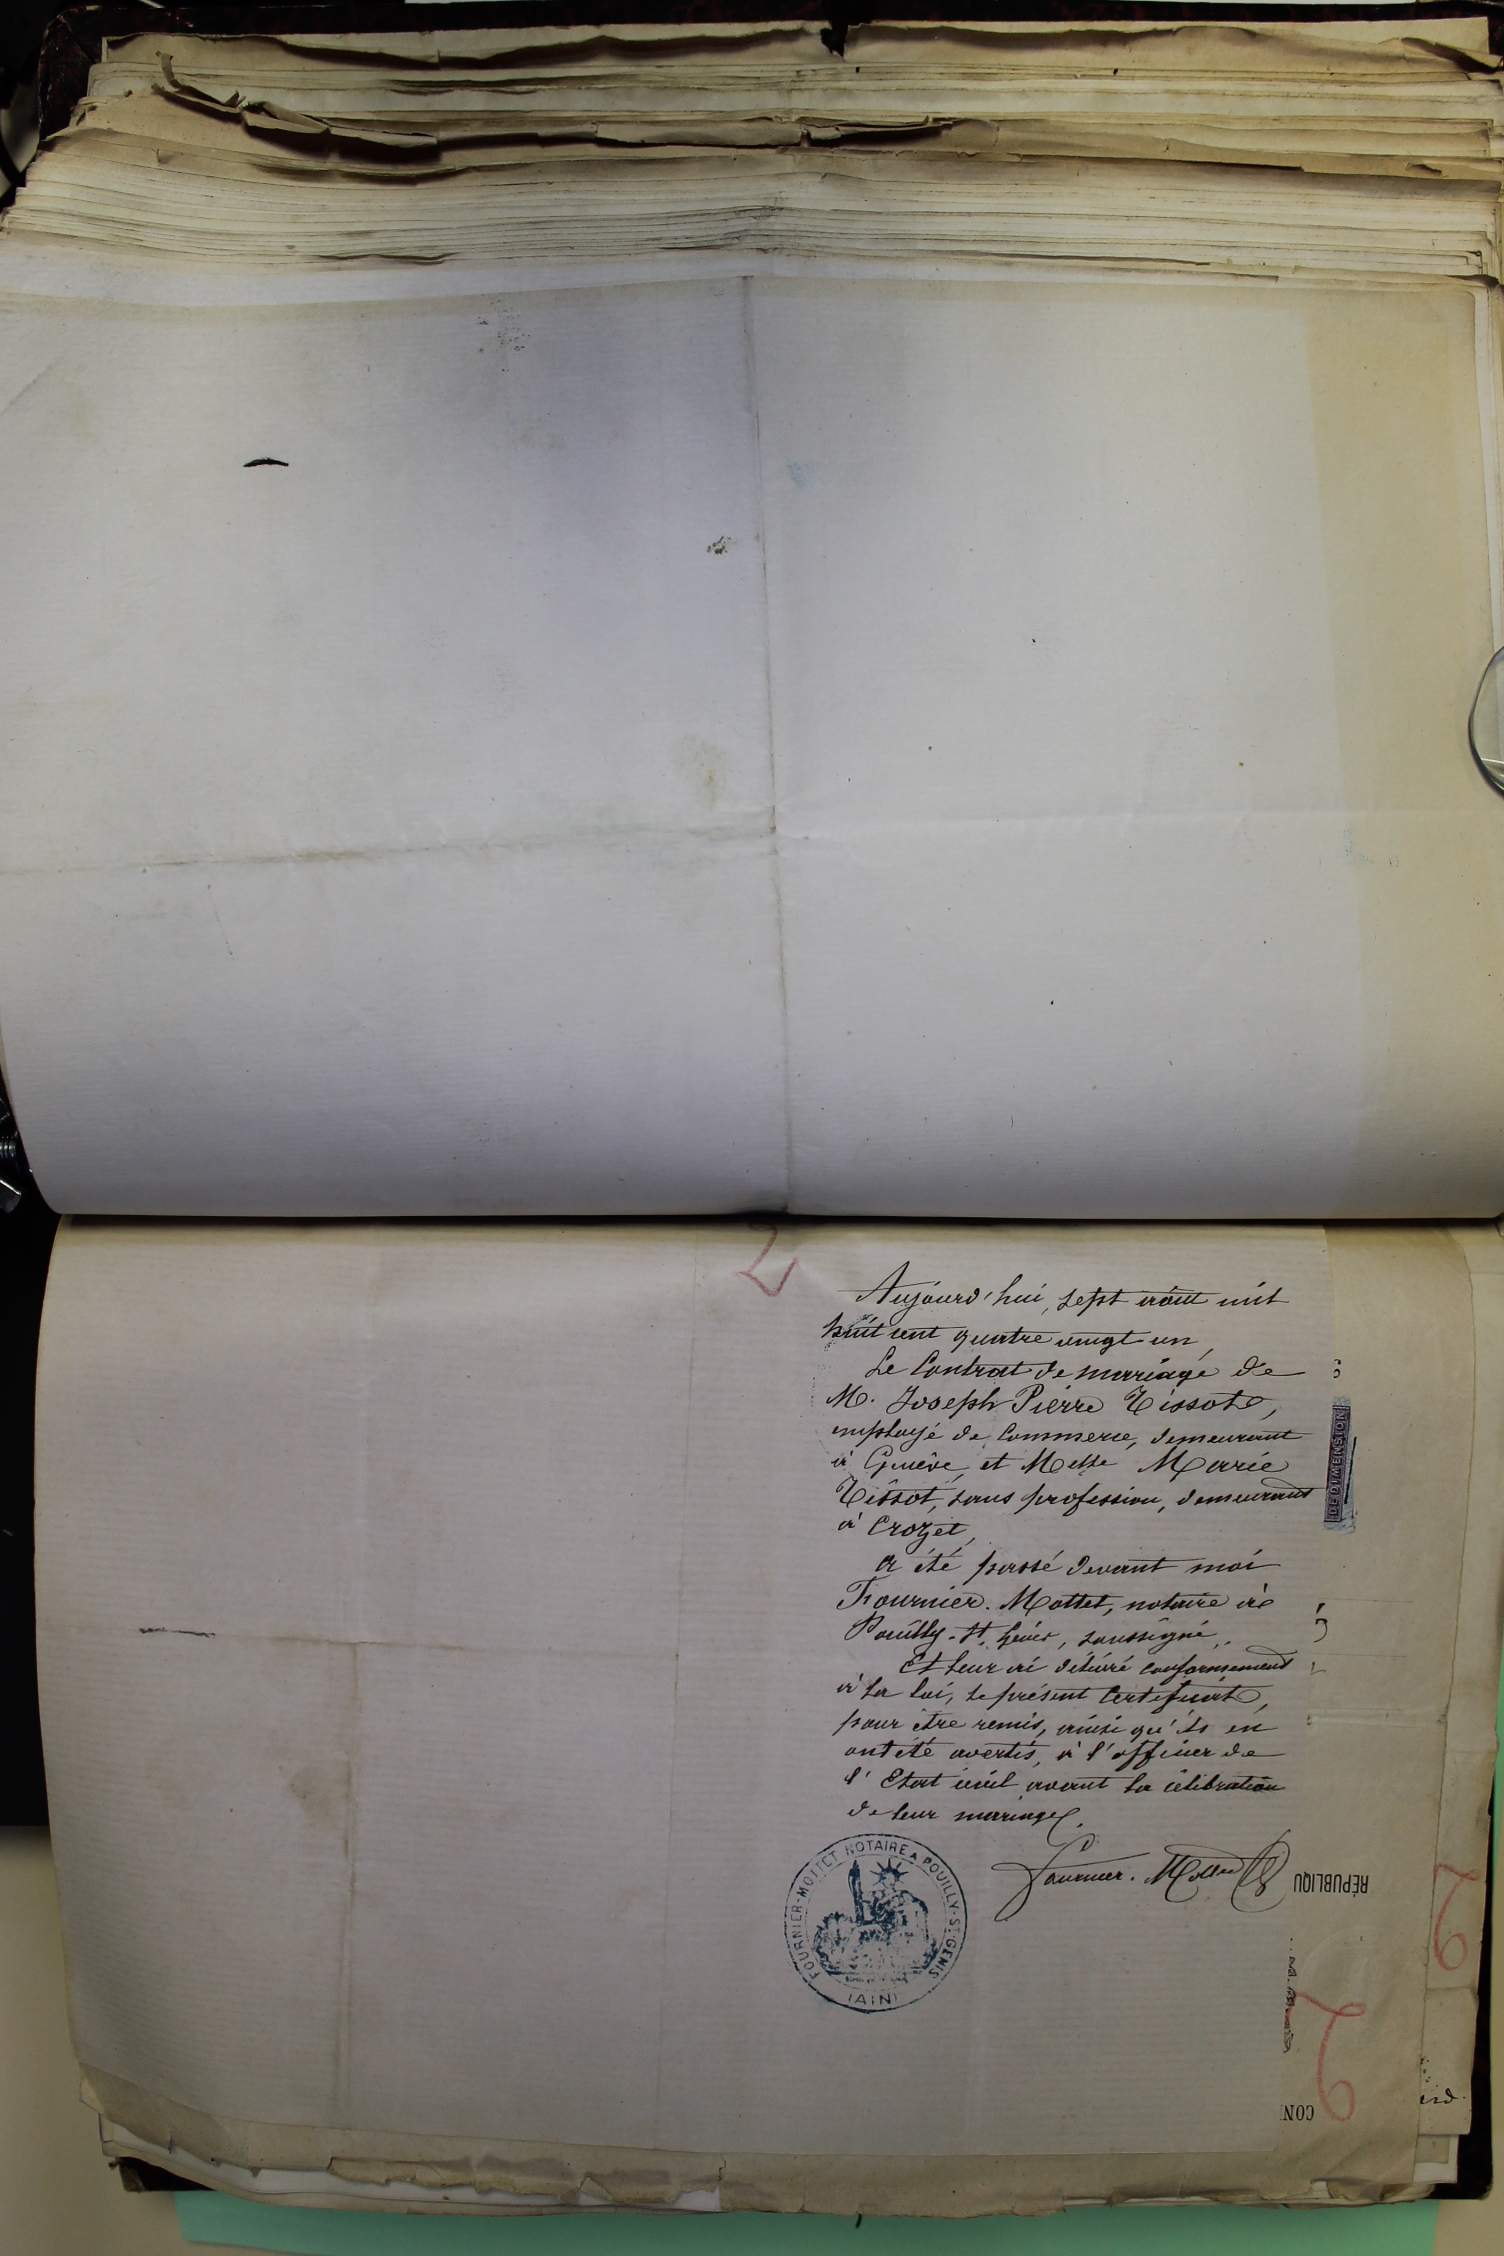 Aujourd'hui, sept août mil
huit cent quatre vingt un,
Le Contrat de mariage de
M. Joseph Pierre Tissot,
employé de Commerce, demeurant
à Genève, et Melle Marie
Tissot, sans profession, demeurant
à Crozet,
a été passé devant moi
Fournier-Mottet, notaire à
Pouilly-St. Genis, soussigné.
Et leur ai délivré conformément
à la loi, le présent Certificat,
pour être remis, ainsi qu'ils en
ont été avertis, à l'officier de
l'Etat civil avant la célébration
de leur mariage.
Fournier. Mottet
FOURNIER-MOTTET NOTAIRE A POUILLY-ST GENIS
(AIN)
DE DIMENSION
RÉPUBLIQU
CON